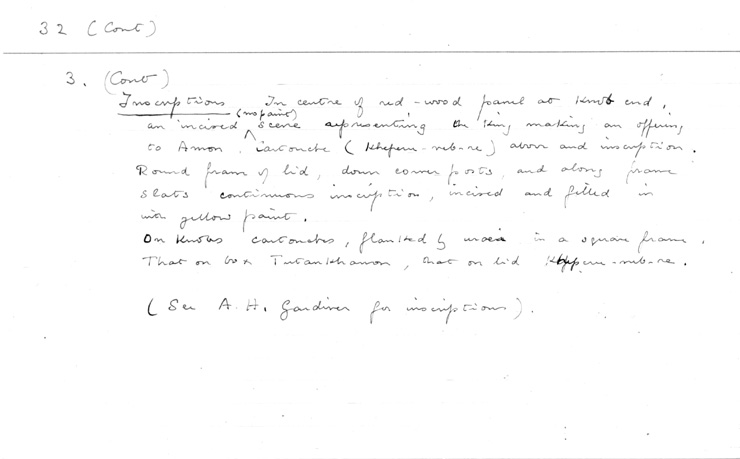 32 (Cont)
3. (Cont)
Inscriptions In centre of red-wood panel at knob end,
an incised (no paint) scene representing the King making an offering
to Amon. Cartouche (Kheperu-neb-re) above and inscription.
Round frame of lid, down corner posts, and along frame
slats continuous inscription, incised and filled in
with yellow paint.
On knobs cartouches, flanked by uraei in a square frame.
That on box Tutankhamon, that on lid Kheperu-neb-re.
(See A. H. Gardiner for inscriptions).